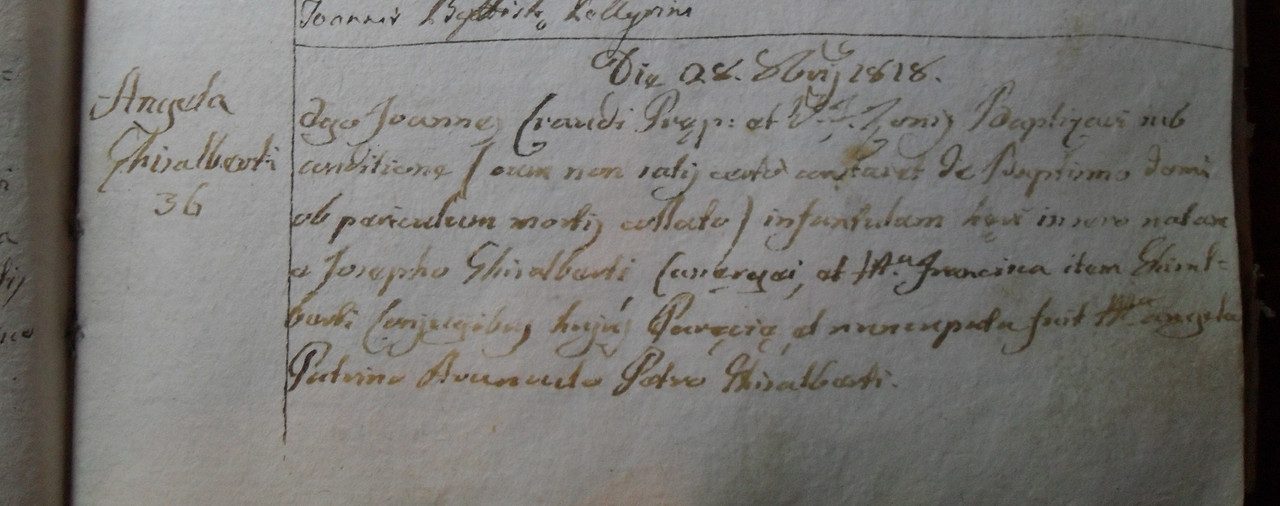 Joannis Baptistę Pellegrini
Die 28. 8bris 1818.
Angela
Ghisalberti
36
Ego Joannes Craudi Pręp: et V. F. Zonij Baptizavi sub
conditione (cum non satis certò constaret de Baptismo domi
ob periculum mortis collato) infantulam heri in sero natam
a Josepho Ghisalberti et M.a Francisca item Ghisal-
berti Conjugibus hujus Paręcię, et nuncupata fuit M.a Angela
Patrino Avunculo Petro Ghisalberti.